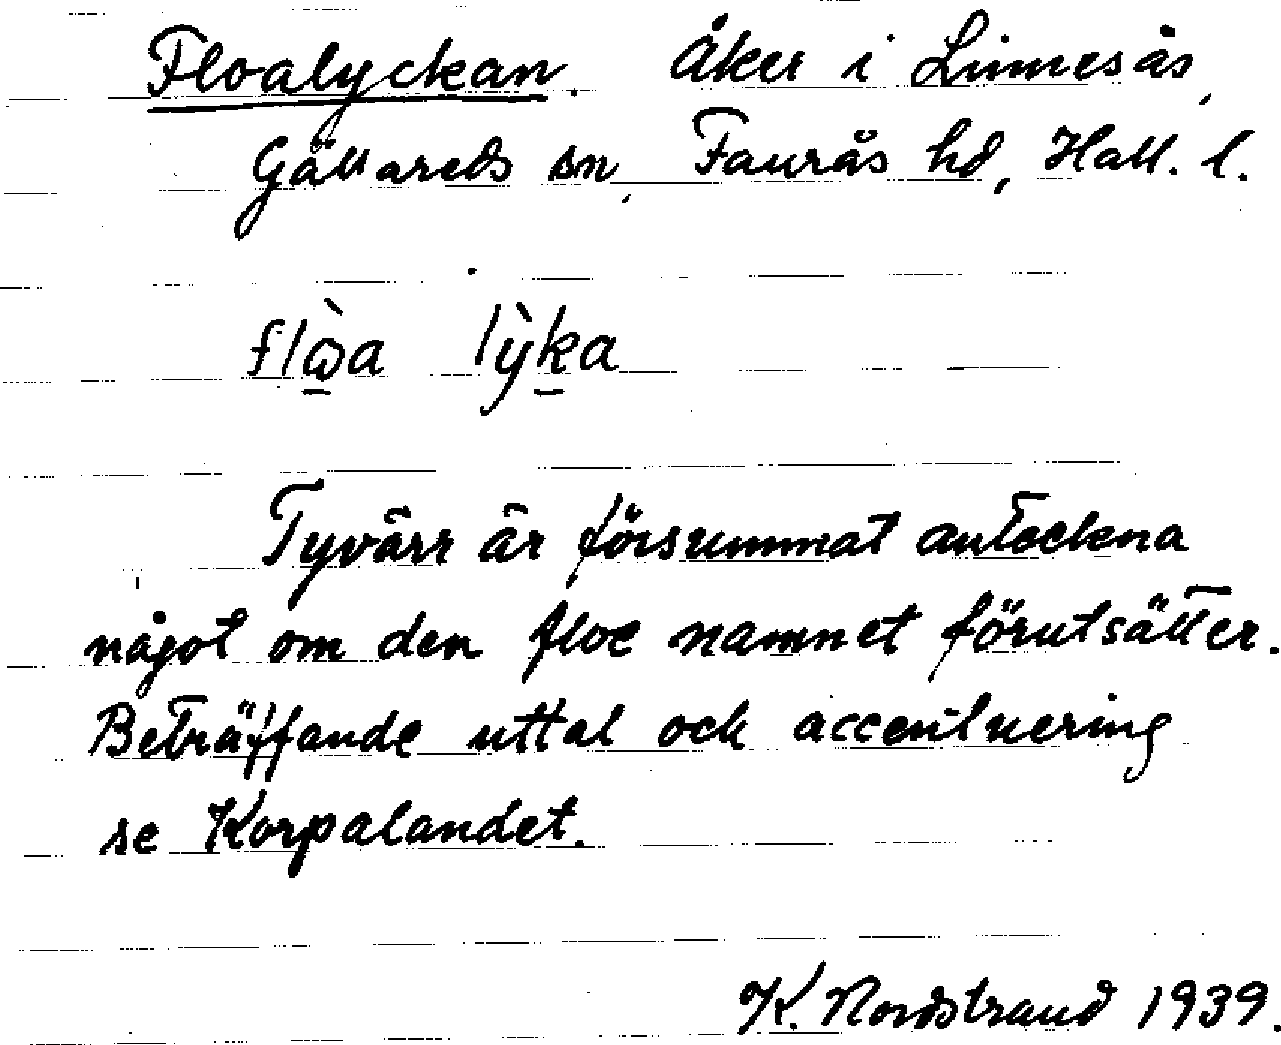 Floalyckan. Åker i Linnesås,
Gällareds sn, Faurås hd, Hall. l.
flὼ̠a lỳk̠a
Tyvärr är försummat anteckna
något om den floe namnet förutsätter.
Beträffande uttal och accentuering
se Korpalandet.
K. Nordstrand 1939.